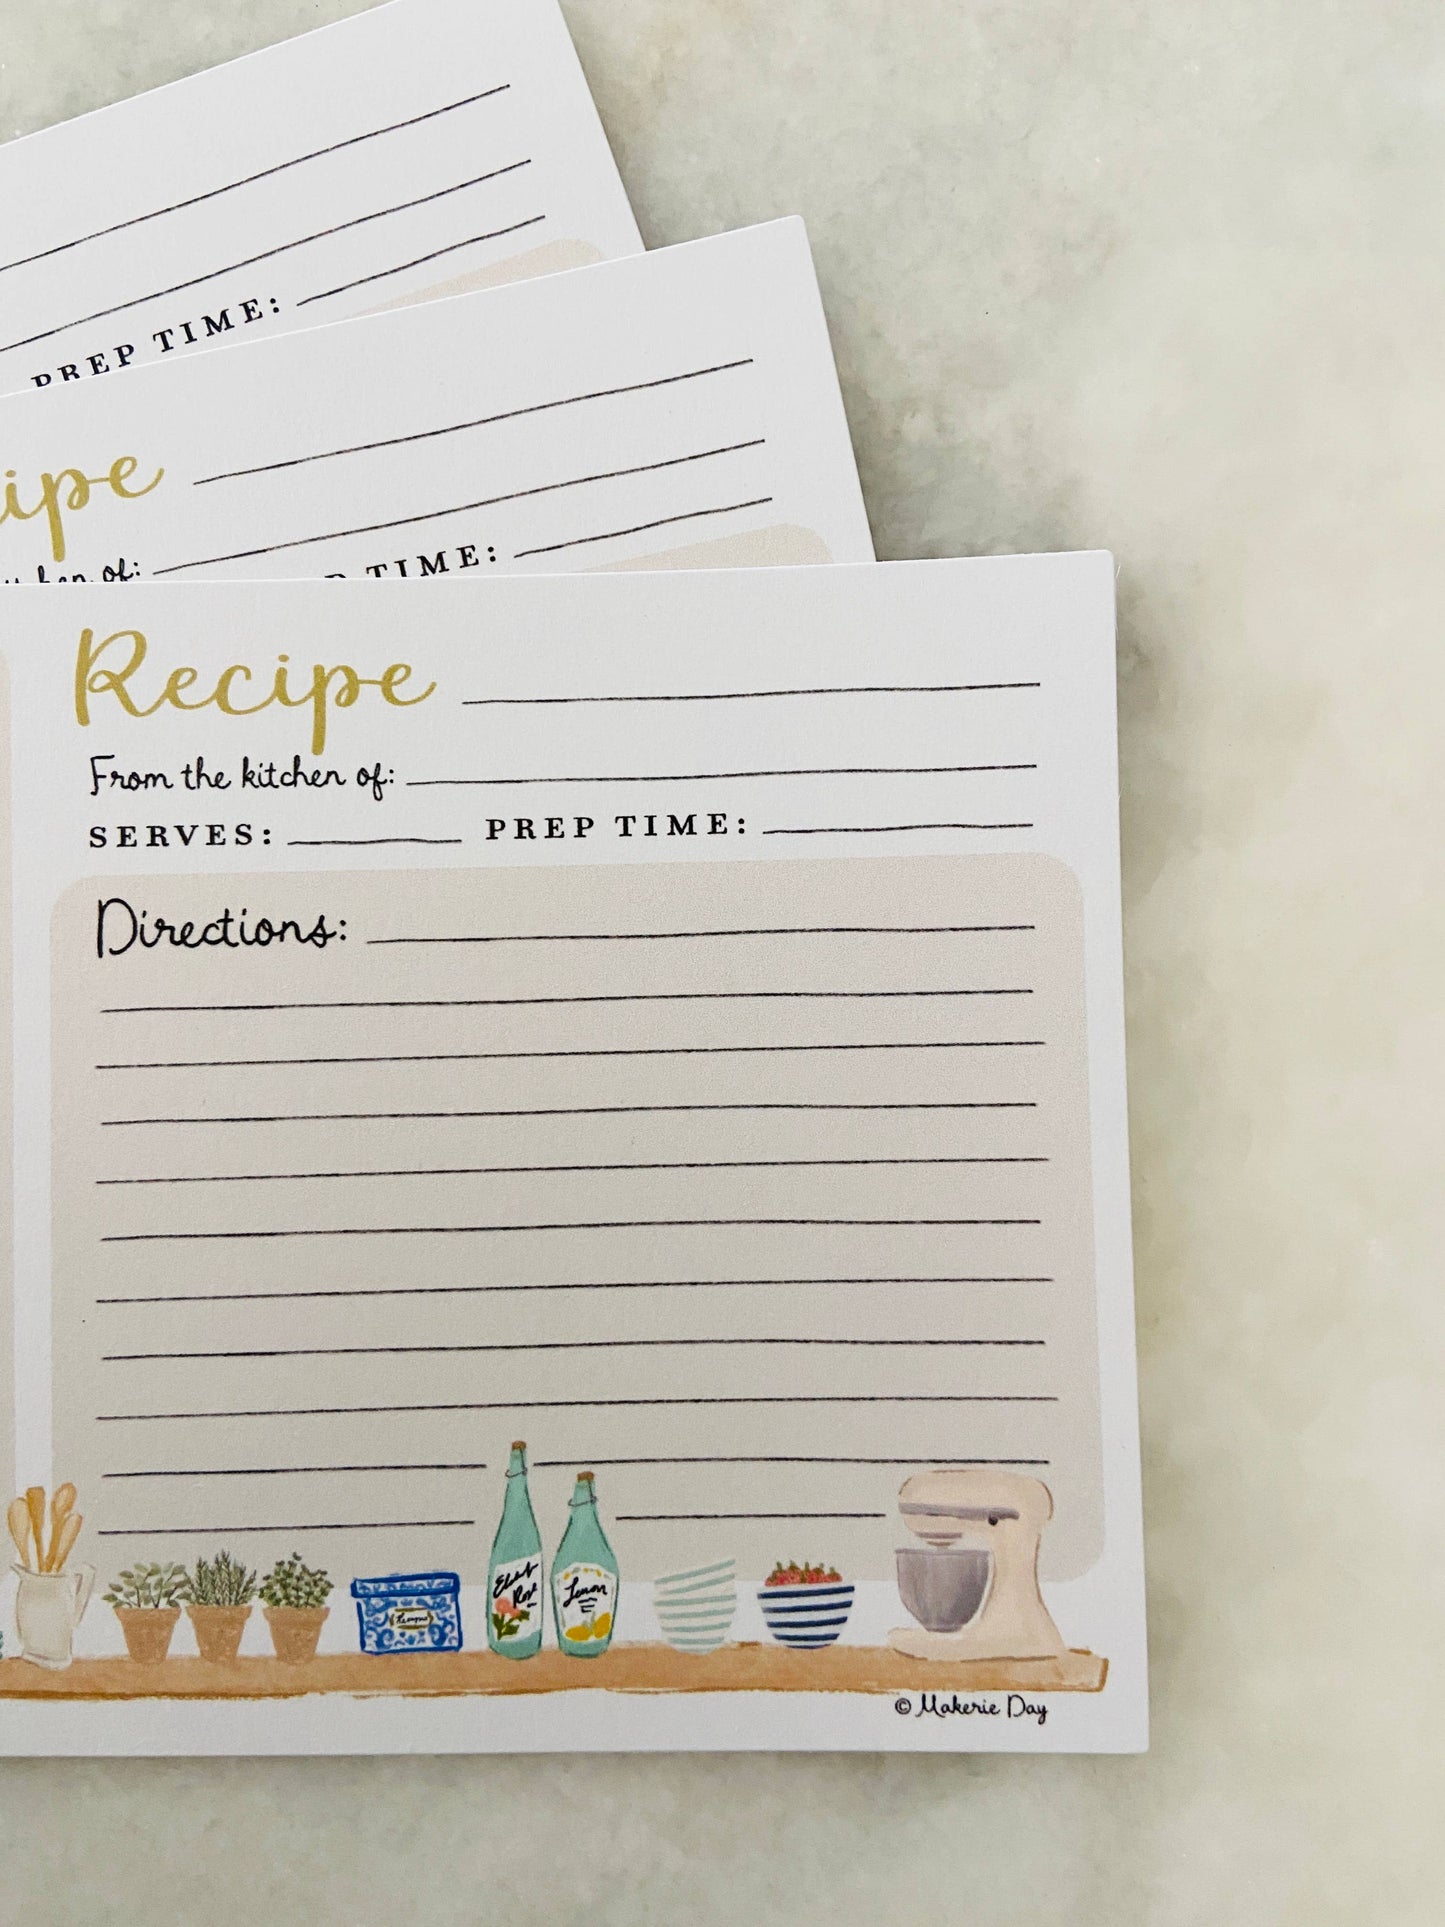 PREP TIME:
ipe
of:
TIME:
Recipe
From the kitchen of:
SERVES: PREP TIME:
Directions:
Lemon
© Makerie Day